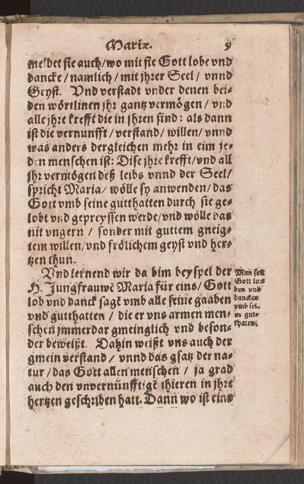 Mariæ. 9
meldet sie auch / wo mit sie Gott lobe vnd
dancke / namlich / mit jhrer Seel / vnnd
Geyst. Vnd verstadt vnder denen bei-
den wörtlinen jhr gantz vermögen / vnd
alle jhre krefft die in jhren sind: als dann
ist die vernunfft / verstand / willen / vnnd
was anders dergleichen mehr in eim je-
den menschen ist: Dise jhre krefft / vnd all
jhr vermögen deß leibs vnnd der Seel /
spricht Maria / wölle sy anwenden / das
Gott vmb seine gutthatten durch sie ge-
lobt vnd gepreyssen werde / vnd wölle das
nit vngern / sonder mit guttem gneig-
tem willen / vnd frölichem geyst vnd her-
tzen thun.
Vnd lernend wir da bim beyspel der
H. Jungfrauwe Maria für eins / Gott
lod vnd danck sagt vmb alle seine gaaben
vnd gutthatten / die er vns armen men-
schen jmmerdar gmeinglich vnd beson-
der beweißt. Dahin weißt vns auch der
gmein verstand / vnnd das gsatz der na-
tur / das Gott allen menschen / ja grad
auch den vnvernünfftigē thieren in jhre
hertzen geschriben hatt. Dann wo ist eins
Man soll
Gott lo-
ben vnd
dancken
vmb sei-
ne gut-
thaten.